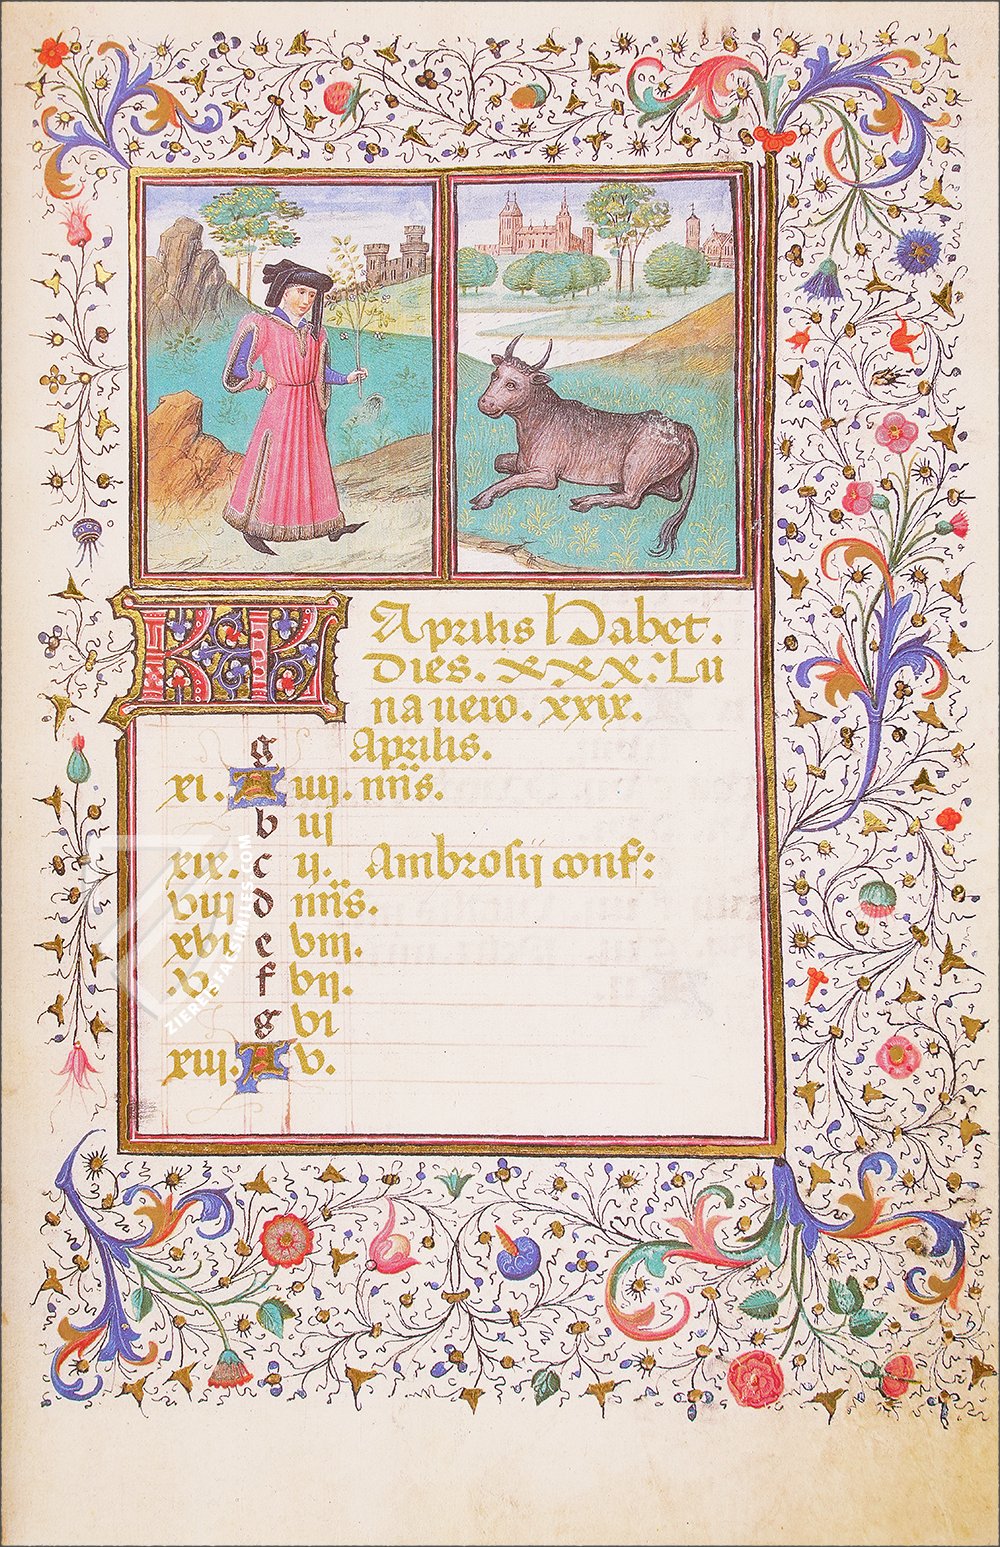 KL Aprilis habet.
Dies. xxx. Lu
na uero. xxix.
g Aprilis.
xi. A iiij. nōīs.
b iij
xix. c ij. Ambrosij conf:
viij d nōīs.
xvi e viij.
v. f vij.
g vi
xiij. A v.
ZIEREIS FACSIMILES.COM